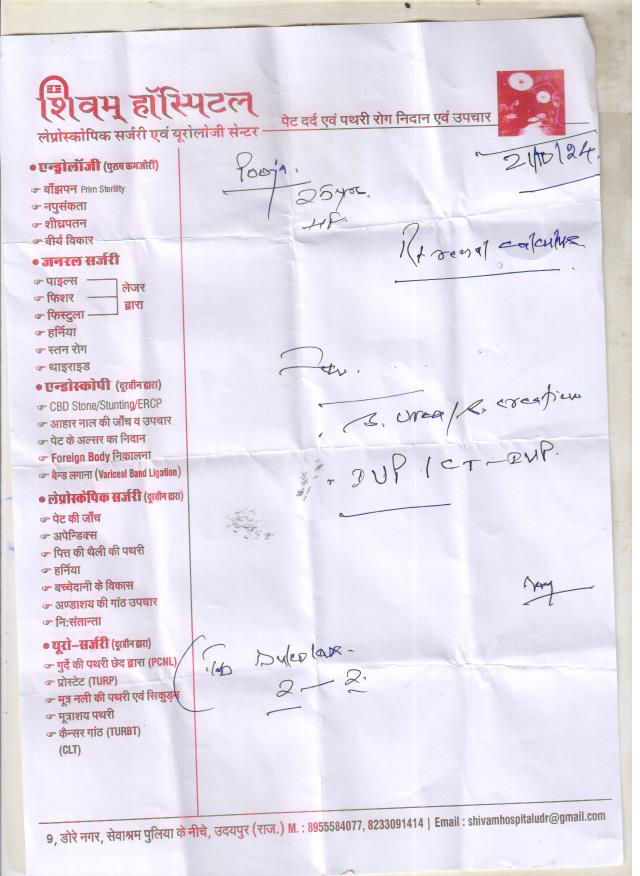 शिवम् हॉस्पिटल
लेप्रोस्कोपिक सर्जरी एवं यूरोलोजी सेन्टर
पेट दर्द एवं पथरी रोग निदान एवं उपचार
21/10/24
Pooja.
25yr
Rt renal calculus
• एन्ड्रोलॉजी (पुरुष कमजोरी)
☞ बाँझपन Prim Sterility
☞ नपुसंकता
☞ शीघ्रपतन
☞ वीर्य विकार
• जनरल सर्जरी
☞ पाइल्स
☞ फिशर
☞ फिस्टुला
लेजर
द्वारा
☞ हर्निया
☞ स्तन रोग
☞ थाइराइड
• एन्डोस्कोपी (दूरबीन द्वारा)
☞ CBD Stone/Stunting/ERCP
☞ आहार नाल की जाँच व उपचार
☞ पेट के अल्सर का निदान
☞ Foreign Body निकालना
☞ बैन्ड लगाना (Variceal Band Ligation)
• लेप्रोस्कॅपिक सर्जरी (दूरबीन द्वारा)
☞ पेट की जाँच
☞ अपेन्डिक्स
☞ पित्त की थैली की पथरी
☞ हर्निया
☞ बच्चेदानी के विकास
☞ अण्डाशय की गांठ उपचार
☞ नि:संतान्ता
• यूरो-सर्जरी (दूरबीन द्वारा)
☞ गुर्दे की पथरी छेद द्वारा (PCNL)
☞ प्रोस्टेट (TURP)
☞ मूत्र नली की पथरी एवं सिकुड़न
☞ मूत्राशय पथरी
☞ कैन्सर गांठ (TURBT)
(CLT)
S. urea/S. creatinine
IVP / CT-IVP.
Tab Dulcolax.
2 — 2
9, डोरे नगर, सेवाश्रम पुलिया के नीचे, उदयपुर (राज.) M. : 8955584077, 8233091414 | Email : shivamhospitaludr@gmail.com